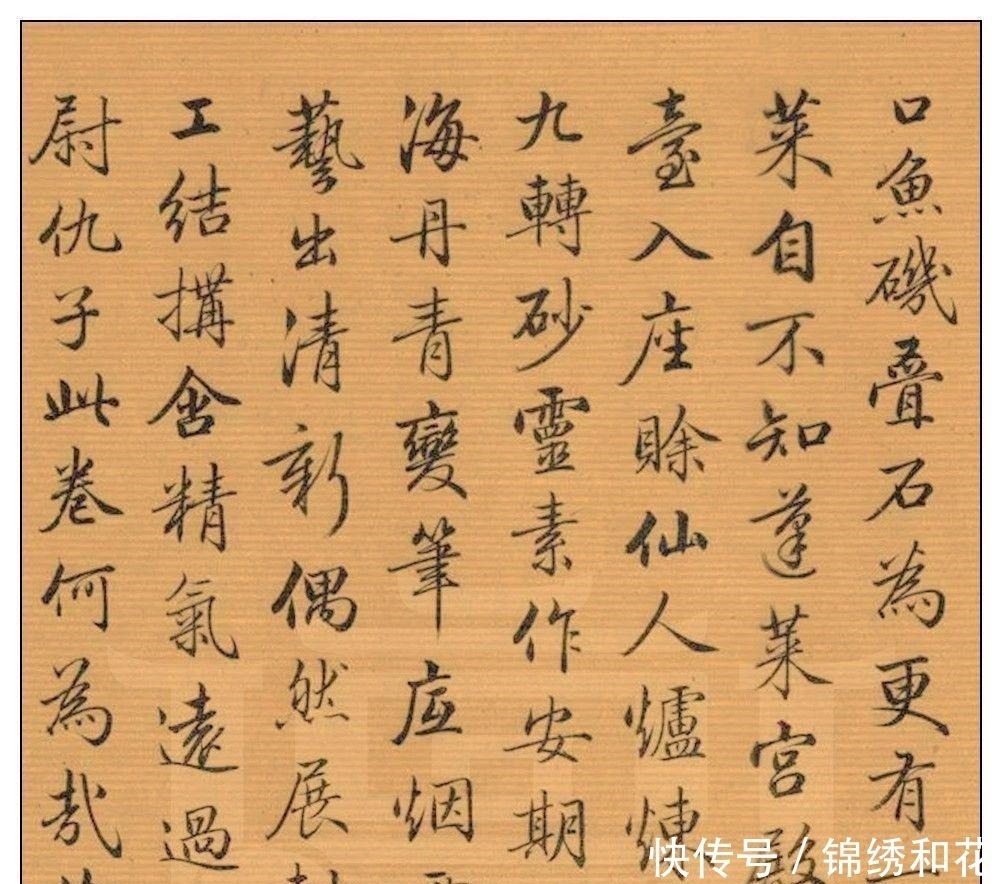 口魚磯疊石為更有
萊自不知蓬萊宮
臺入座賒仙人爐煉
九轉砂靈素作安期
海丹青變筆底烟
藝出清新偶然展
工結搆含精氣遠過
尉仇子此卷何為哉
快传号 / 锦绣和花